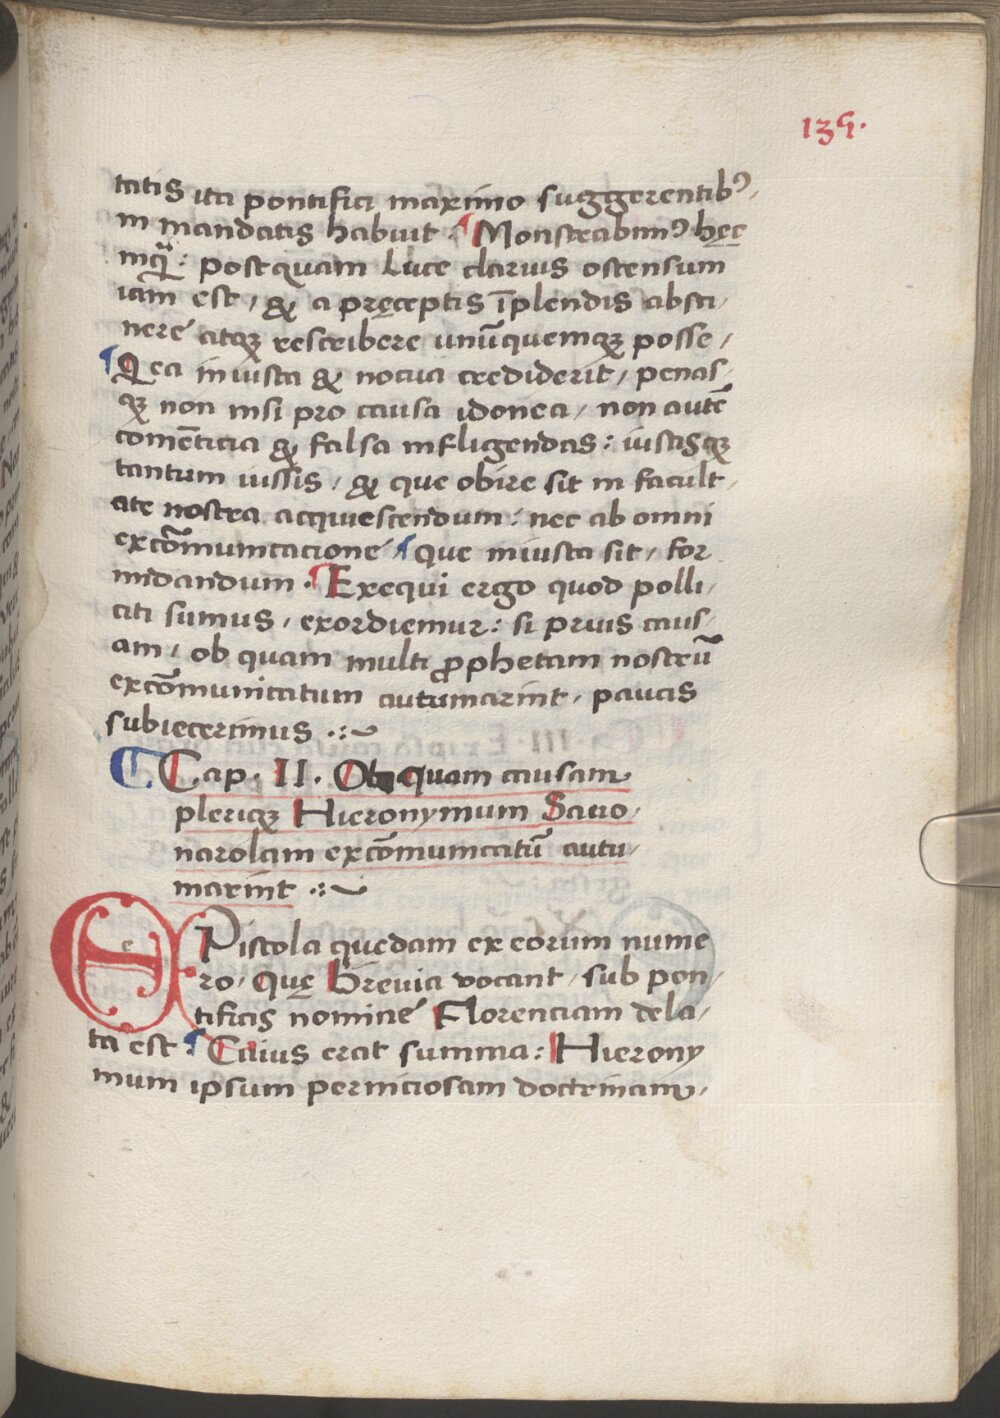 135.
tatis ita pontifici maximo suggerentibꝰ,
in mandatis habuit. ¶ Monstrabimꝰ hęc
inqͣ: postquam luce clarius ostensum
iam est, & a pręceptis īplendis absti,
nere atqꝫ rescribere unū̄quemqꝫ posse,
¶ Qea iniusta & nociua crediderit, penas,
qꝫ non nisi pro causa idonea, non autē
comēticia & falsa infligendas: iustisqꝫ
tantum iussis, & que obire sit in facult,
ate nostra acquiescendum: nec ab omni
excōmunicacione ¶ que iniusta sit, for
midandum. ¶ Exequi ergo quod polli,
citi sumus, exordiemur: si prius caus,
am, ob quam multi ꝓphetam nostrū
excōmunicatum autumarint, paucis
subiecerimus .:~
¶ Cap. II. Ob quam causam
pleriqꝫ Hieronymum Sauo,
narolam excōmunicatū autu,
marint .:~
EPistola quedam ex eorum nume
ro, quę Breuia vocant, sub pon,
tificis nomine Florenciam dela,
ta est. ¶ Cuius erat summa: Hierony
mum ipsum perniciosam doctrinam,